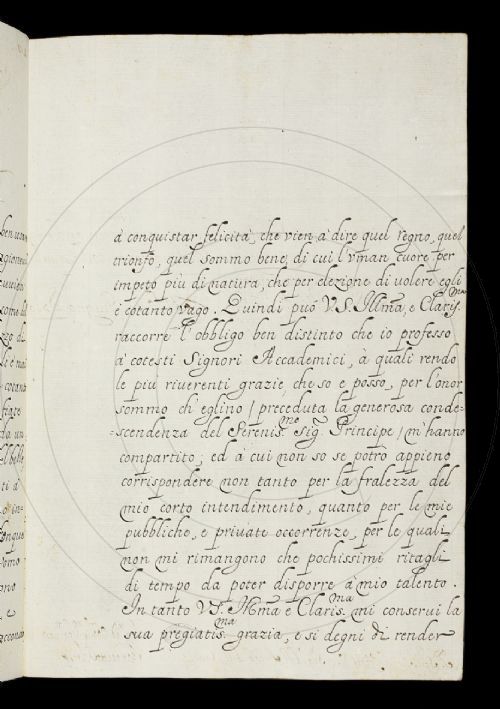 à conquistar felicità, che vien à dire quel regno, quel
trionfo, quel sommo bene, di cui l'vman cuore per
impeto più di natura, che per elezione di volere egli
è cotanto vago. Quindi può V.S. Illma, e Claris.ma
raccorre l'obbligo ben distinto che io professo
à cotesti Signori Accademici, à quali rendo
le più riuerenti grazie, che so e posso, per l'onor
sommo ch'eglino / preceduta la generosa conde=
=scendenza del Serenis.mo Sig. Principe / m'hanno
compartito; ed à cui non so se potrò appieno
corrispondere non tanto per la fralezza del
mio corto intendimento, quanto per le mie
pubbliche, e priuate occorrenze, per le quali
non mi rimangono che pochissimi ritagli
di tempo da poter disporre à mio talento.
In tanto V.S. Illma e Claris.ma mi conserui la
sua pregiatis.ma grazia, e si degni di render